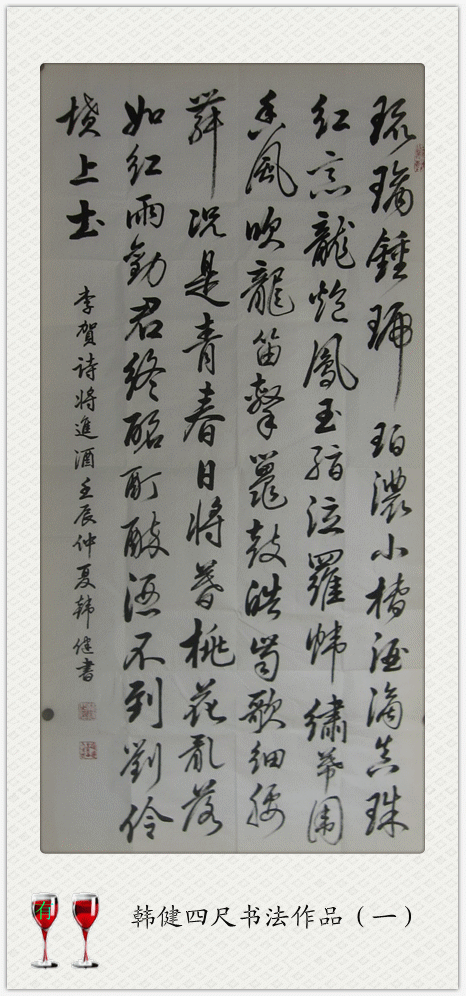 琉璃鍾琥珀濃小槽酒滴真珠
紅烹龍炮鳳玉脂泣羅幃繡幕圍
香風吹龍笛擊鼉鼓皓齒歌細腰
舞況是青春日將暮桃花亂落
如紅雨勸君終酩酊醉酒不到劉伶
墳上土
李賀詩將進酒壬辰仲夏韩健書
有
韩健四尺书法作品（一）